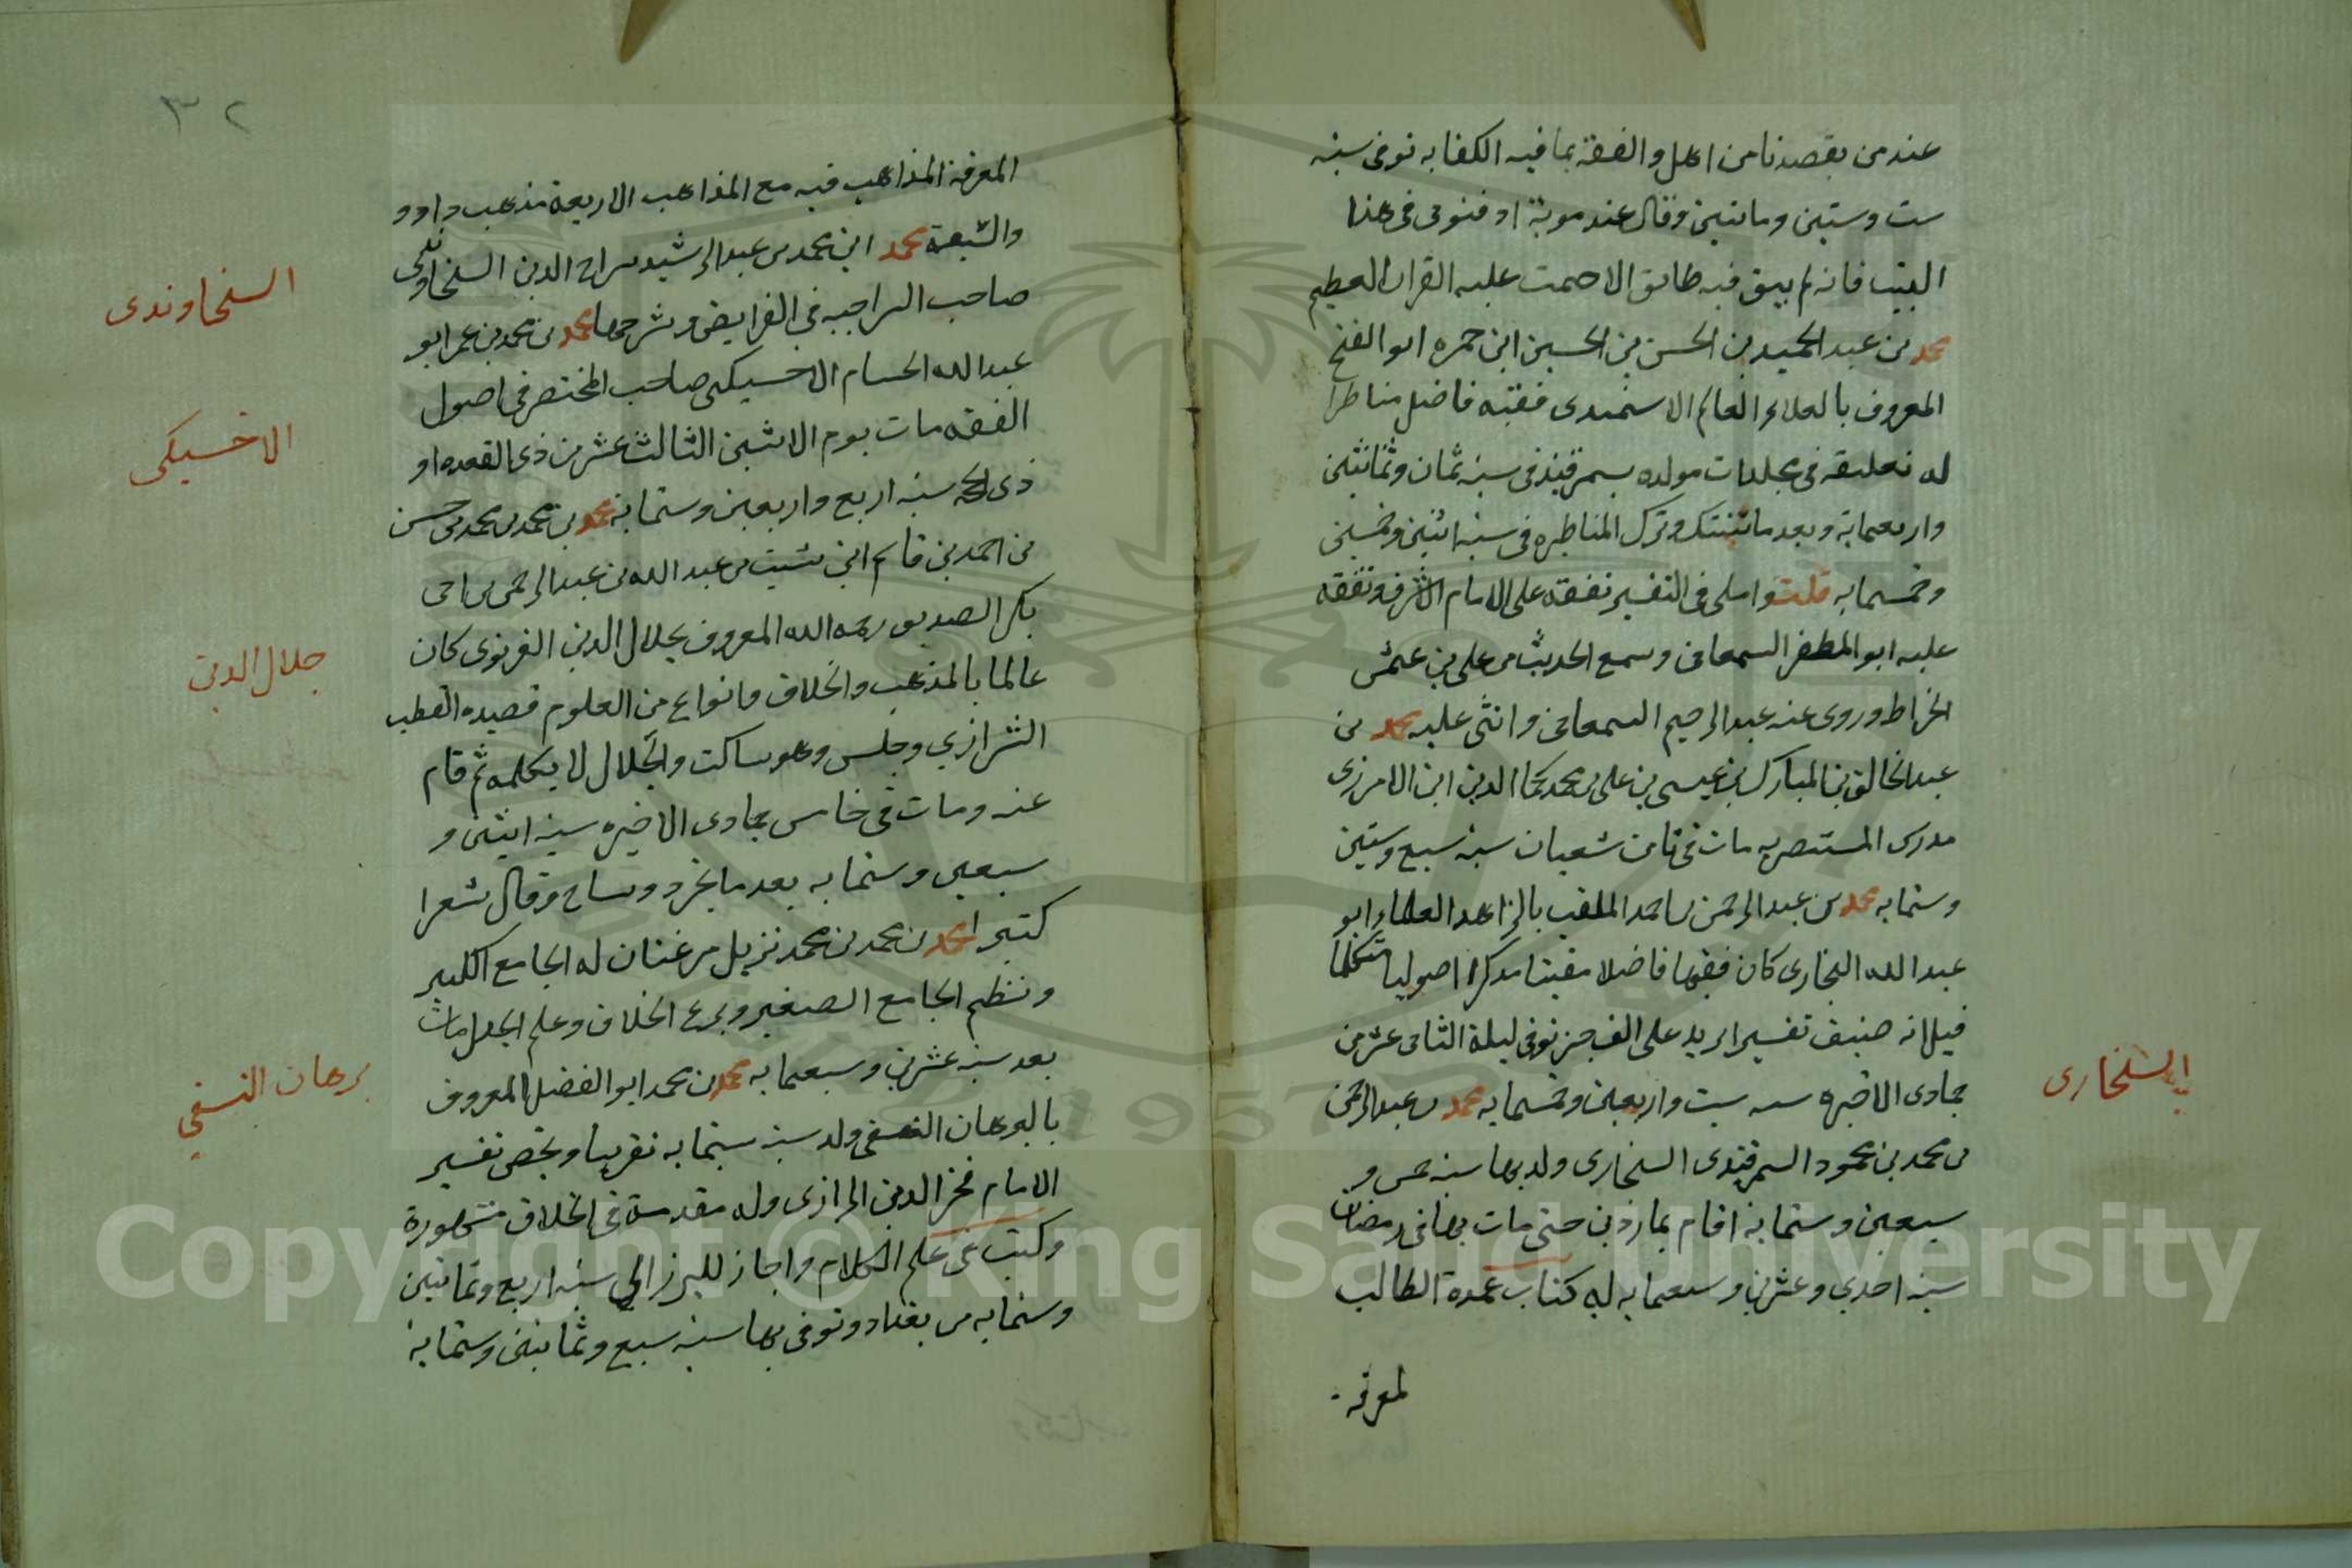 عند من يقصدنا من اهل والفقة بما فيه الكفايه توفى سنه
ست وستين وماتتين وقال عند موتة ادفنونى فى هذا
البيت فانه لم يبق فيه طابق الا حمت عليه القران العظيم
محمد بن عبد الحميد بن الحسن بن الحسين ابن حمزه ابو الفتح
المعروف بالعلاء العالم الاسمندى فقيه فاضل مناظرا
له تعليقه فى مجلدات مولده بسمرقند فى سنه ثمان وثمانين
واربعماية وبعد ما تنسك وترك المناظره فى سنه اثنين وخمسين
وخمسمايه قلت واملى فى التفسير تفقه على الامام الاشرف وتفقه
عليه ابو المظفر السمعانى وسمع الحديث من على بن عمثر
الخراط وروى عنه عبد الرحيم السمعانى واثنى عليه محمد بن
عبد الخالق بن المبارك بن عيسى بن على بن محمد كمال الدين ابن الامرزى
مدرس المستنصريه مات فى ثامن شعبان سنه سبع وستين
وستمايه محمد بن عبد الرحمن بن احمد الملقب بالزاهد العلاء ابو
عبد الله البخارى كان فقيها فاضلا مفيتا مذكرا اصوليا متكلما
قيل انه صنف تفسيرا يزيد على الف جز توفى ليلة الثانى عشر من
جمادى الاخيره سنه ست واربعين وخمسمايه محمد بن عبد الرحمن
بن محمد بن محمود السمرقندى السنجارى ولد بها سنه خمس و
سبعين وستمايه اقام بماردين حتى مات بها فى رمضان
سنه احدى وعشرين وسبعمايه له كتاب عمدة الطالب
لمعرفه
السنجارى
٣٢
المعرفة المذاهب فيه مع المذاهب الاربعة مذهب داوود
والشيعة محمد ابن محمد بن عبد الرشيد سراج الدين السنجاوندى
صاحب السراجيه فى الفرايض وشرحها محمد بن محمد بن عمر ابو
عبد الله الحسام الاخسيكى صاحب المختصر فى اصول
الفقه مات يوم الاثنين الثالث عشر من ذى القعده او
ذى الحجه سنه اربع واربعين وستمايه محمد بن محمد بن محمد بن حسن
بن احمد بن قاسم ابن شيت بن عبد الله بن عبد الرحمن بن ابى
بكر الصديق رحمه الله المعروف بجلال الدين الغزنوى كان
عالما بالمذهب والخلاف وانواع من العلوم قصيده القطب
الشرازي وجلس وهو ساكت والجلال لا يكلمه ثم قام
عنه ومات فى خامس جمادى الاخيره سنه اثنين و
سبعين وستمايه بعد ما تجرد وساح وقال شعرا
كثيرا محمد بن محمد بن محمد نزيل مرغنان له الجامع الكبير
ونظم الجامع الصغير وبرع الخلاف وعلم الجدل مات
بعد سنه عشرين وسبعمايه محمد بن محمد ابو الفضل المعروف
بالبرهان النسفى ولد سنه ستمايه تقريبا ولخص تفسير
الامام فخر الدين الرازى وله مقدمة فى الخلاف مشهورة
وكتب فى علم الكلام واجاز للبرزالي سنه اربع وثمانين
وستمايه من بغداد وتوفى بها سنه سبع وثمانين وستمايه
السنحاوندى
الاخسيكى
جلال الدين
برهان النسفي
Copyright © King Saud University
1957